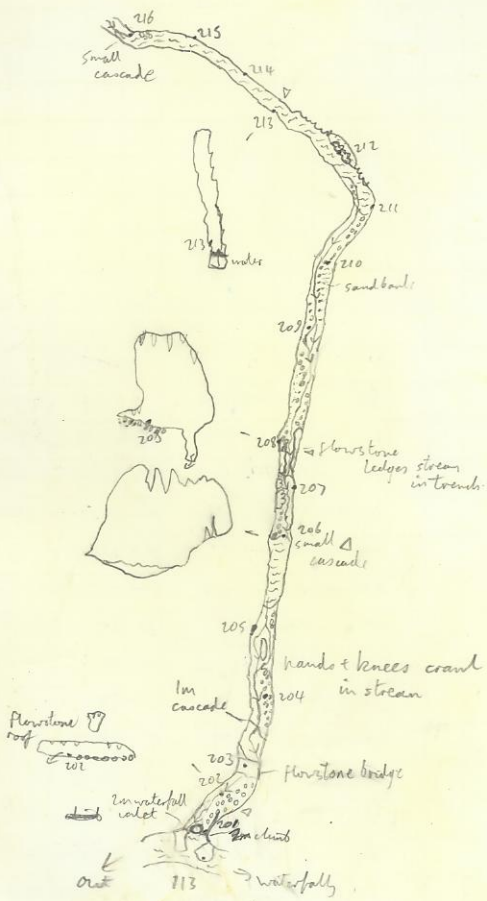 216
215
Small
cascade
214
213
212
211
213
water
210
sandbank
209
208
203
flowstone
ledges stream
in trench
207
206
small
cascade
205
hands + knees crawl
in stream
204
1m
cascade
flowstone
roof
202
203
flowstone bridge
202
2m waterfall
inlet
climb
201
2m climb
Out
113
waterfalls